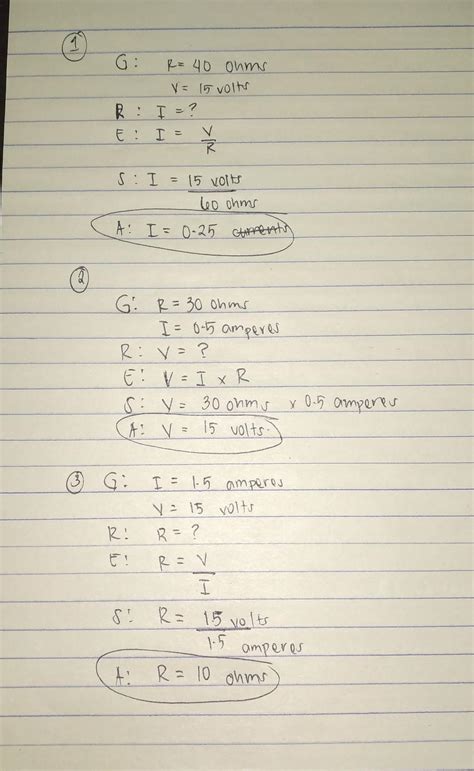 1
G: R = 40 ohms
V = 15 volts
R: I = ?
E: I = V
R
S: I = 15 volts
60 ohms
A: I = 0.25 currents
2
G: R = 30 ohms
I = 0.5 amperes
R: V = ?
E: V = I x R
S: V = 30 ohms x 0.5 amperes
A: V = 15 volts.
3 G: I = 1.5 amperes
V = 15 volts
R: R = ?
E: R = V
I
S: R = 15 volts
1.5 amperes
A: R = 10 ohms